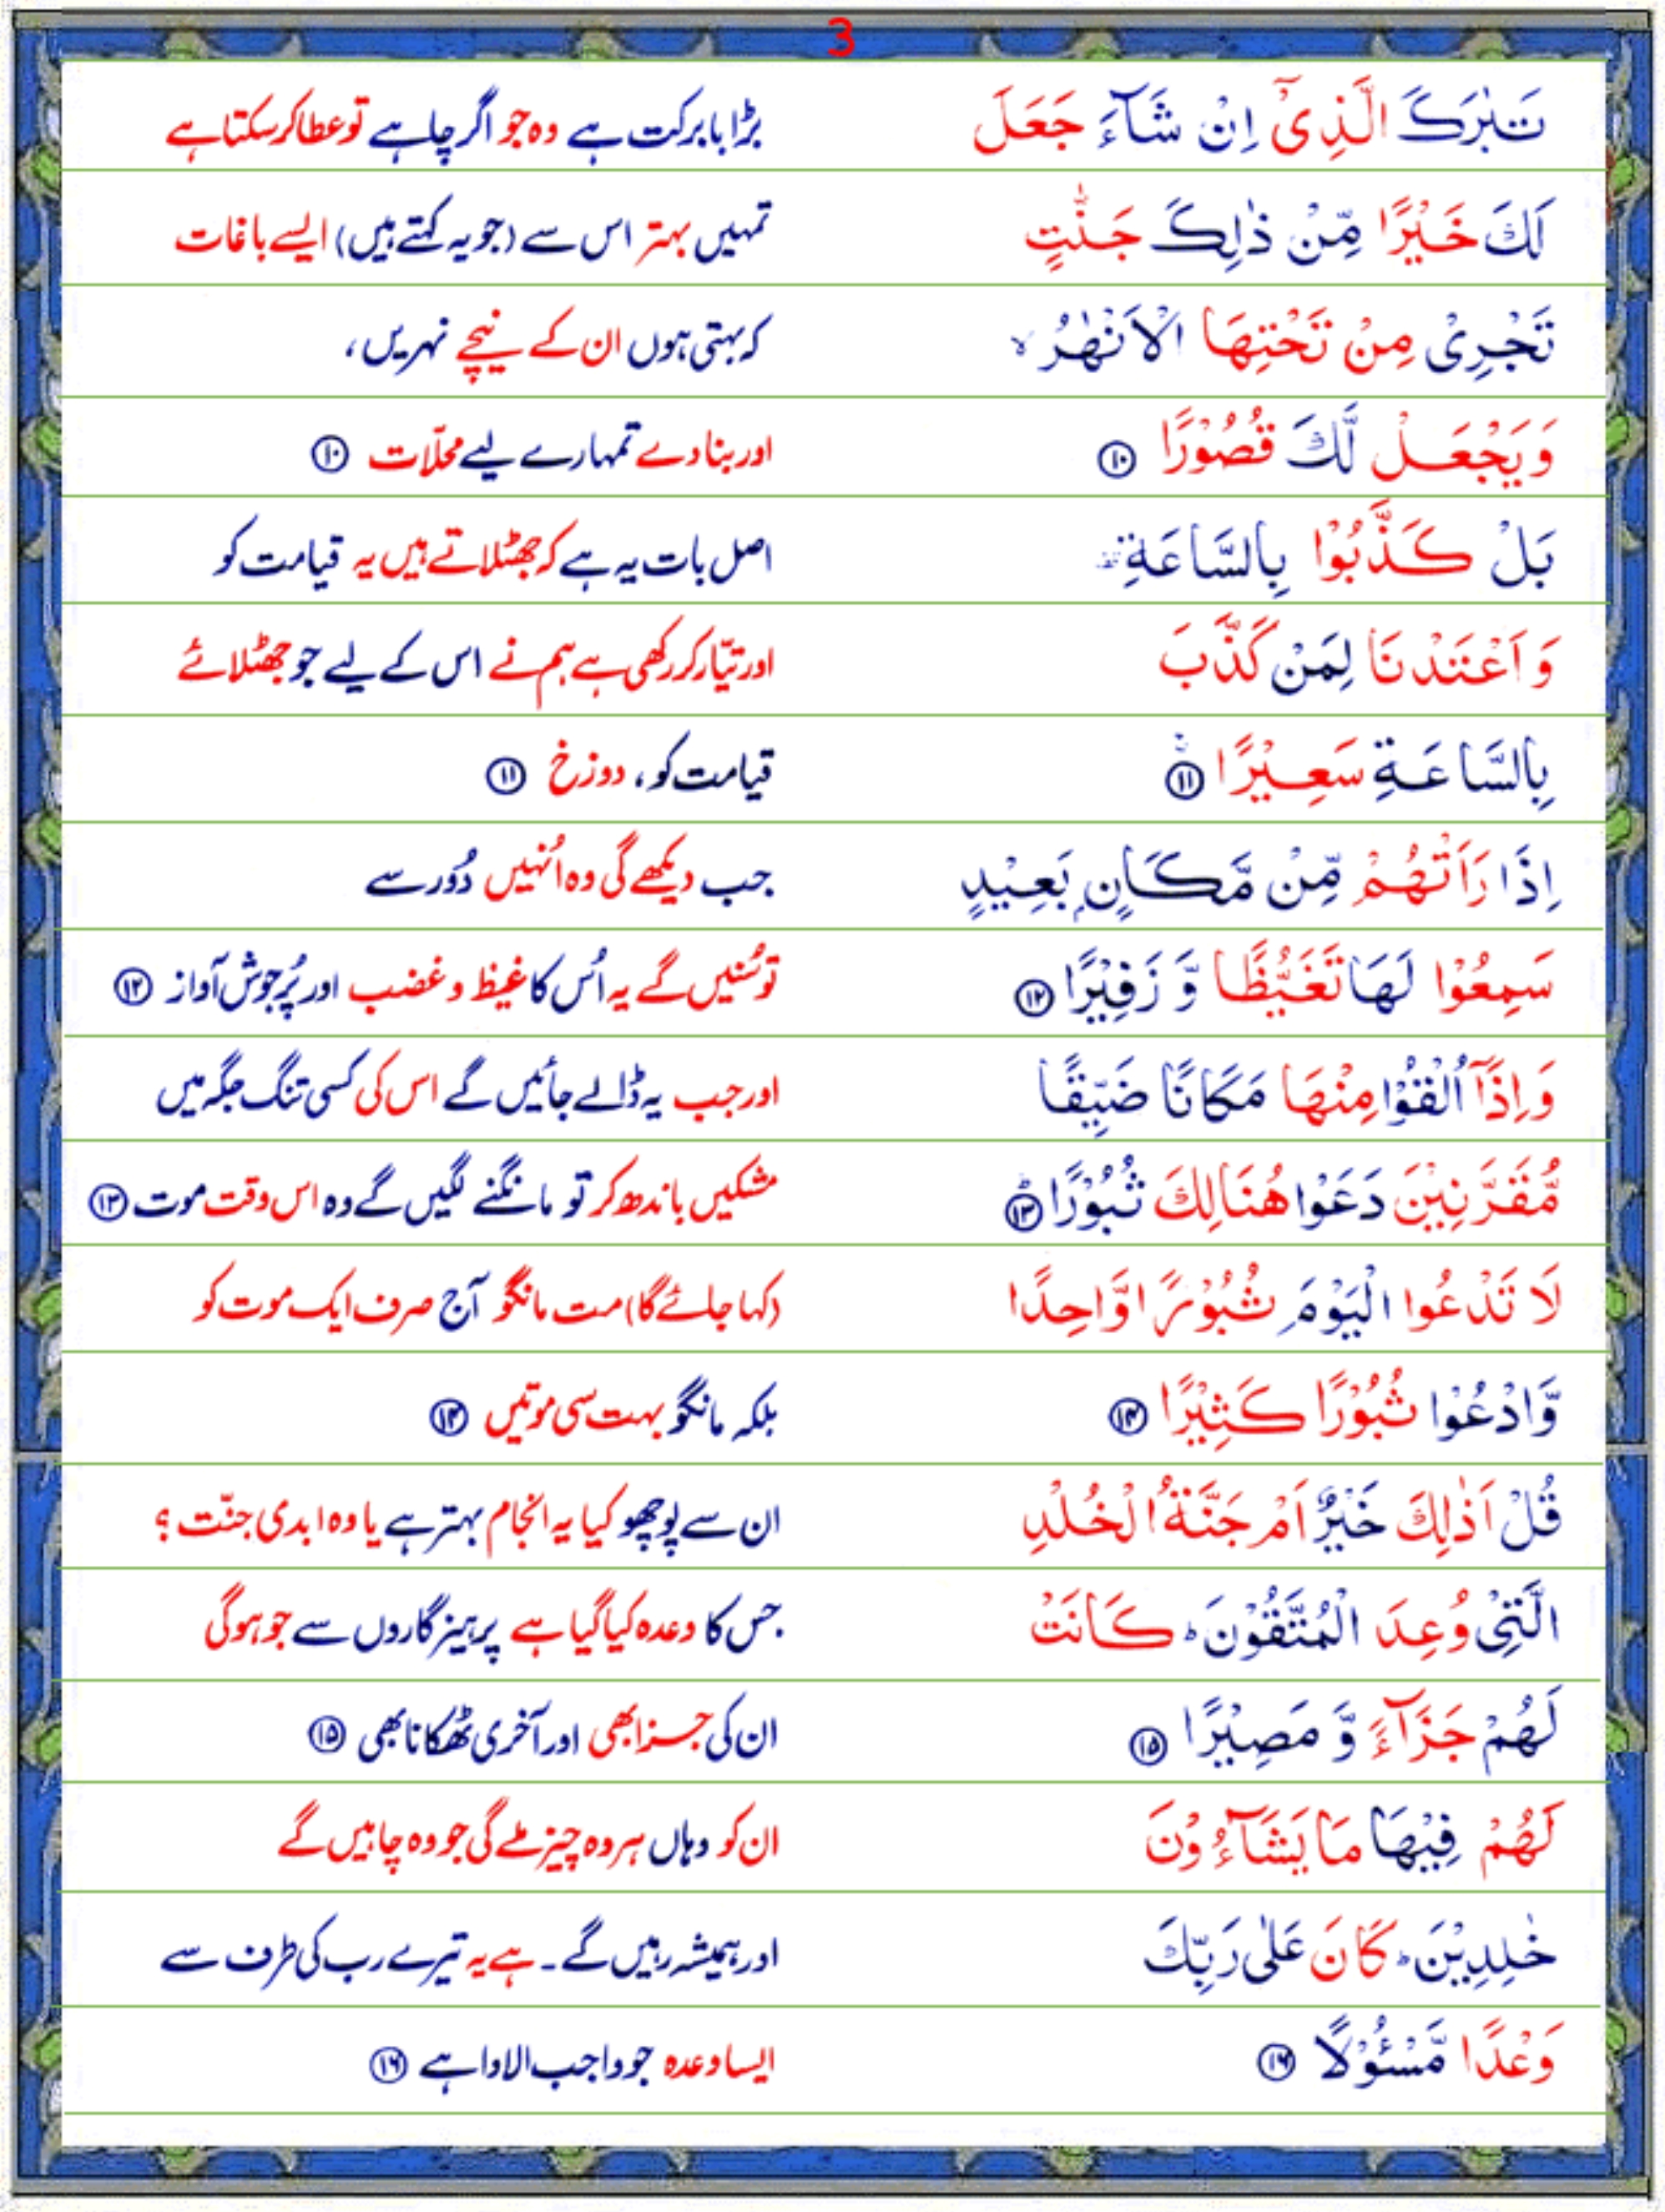 3
تَبٰرَكَ الَّذِیْۤ اِنْ شَآءَ جَعَلَ بڑا بابرکت ہے وہ جو اگر چاہے تو عطا کر سکتا ہے
لَكَ خَیْرًا مِّنْ ذٰلِكَ جَنّٰتٍ تمہیں بہتر اس سے (جو یہ کہتے ہیں) ایسے باغات
تَجْرِیْ مِنْ تَحْتِهَا الْاَنْهٰرُ ۙ کہ بہتی ہوں ان کے نیچے نہریں،
وَیَجْعَلْ لَّكَ قُصُوْرًا ۝۱۰ اور بنا دے تمہارے لیے محلّات ۝۱۰
بَلْ كَذَّبُوْا بِالسَّاعَةِ اصل بات یہ ہے کہ جھٹلاتے ہیں یہ قیامت کو
وَاَعْتَدْنَا لِمَنْ كَذَّبَ اور تیّار کر رکھی ہے ہم نے اس کے لیے جو جھٹلائے
بِالسَّاعَةِ سَعِیْرًا ۝۱۱ قیامت کو، دوزخ ۝۱۱
اِذَا رَاَتْهُمْ مِّنْ مَّكَانٍۭ بَعِیْدٍ جب دیکھے گی وہ اُنہیں دُور سے
سَمِعُوْا لَهَا تَغَیُّظًا وَّ زَفِیْرًا ۝۱۲ تو سُنیں گے یہ اُس کا غیظ و غضب اور پُرجوش آواز ۝۱۲
وَاِذَاۤ اُلْقُوْا مِنْهَا مَكَانًا ضَیِّقًا اور جب یہ ڈالے جائیں گے اس کی کسی تنگ جگہ میں
مُّقَرَّنِیْنَ دَعَوْا هُنَالِكَ ثُبُوْرًا ۝۱۳ مشکیں باندھ کر تو مانگنے لگیں گے وہ اس وقت موت ۝۱۳
لَا تَدْعُوا الْیَوْمَ ثُبُوْرًا وَّاحِدًا (کہا جائے گا) مت مانگو آج صرف ایک موت کو
وَّادْعُوْا ثُبُوْرًا كَثِیْرًا ۝۱۴ بلکہ مانگو بہت سی موتیں ۝۱۴
قُلْ اَذٰلِكَ خَیْرٌ اَمْ جَنَّةُ الْخُلْدِ ان سے پوچھو کیا یہ انجام بہتر ہے یا وہ ابدی جنّت ؟
الَّتِیْ وُعِدَ الْمُتَّقُوْنَ ؕ كَانَتْ جس کا وعدہ کیا گیا ہے پرہیزگاروں سے جو ہوگی
لَهُمْ جَزَآءً وَّ مَصِیْرًا ۝۱۵ ان کی جزا بھی اور آخری ٹھکانا بھی ۝۱۵
لَهُمْ فِیْهَا مَا یَشَآءُوْنَ ان کو وہاں ہر وہ چیز ملے گی جو وہ چاہیں گے
خٰلِدِیْنَ ؕ كَانَ عَلٰی رَبِّكَ اور ہمیشہ رہیں گے۔ ہے یہ تیرے رب کی طرف سے
وَعْدًا مَّسْئُوْلًا ۝۱۶ ایسا وعدہ جو واجب الادا ہے ۝۱۶